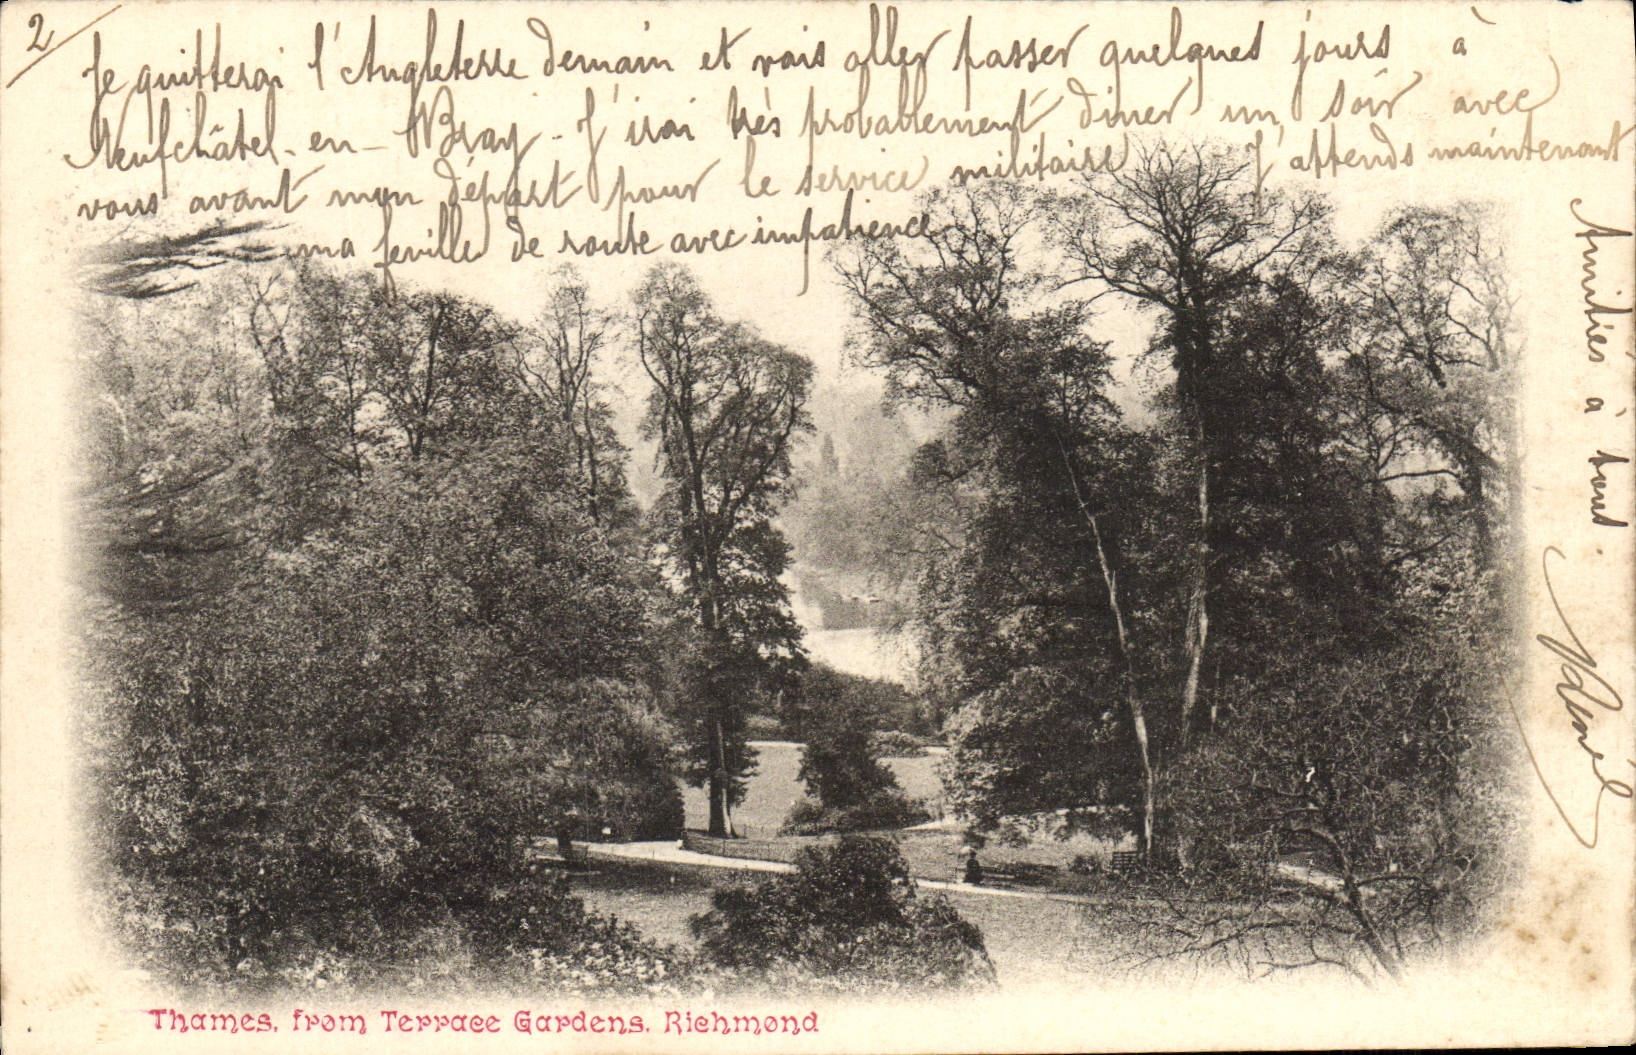 2
Je quitterai l'Angleterre demain et vais aller passer quelques jours à
Neufchâtel-en-Bray - J'irai très probablement diner un soir avec
vous avant mon départ pour le service militaire J'attends maintenant
ma feuille de route avec impatience
Amitiés à tous.
Thames, from Terrace Gardens, Richmond